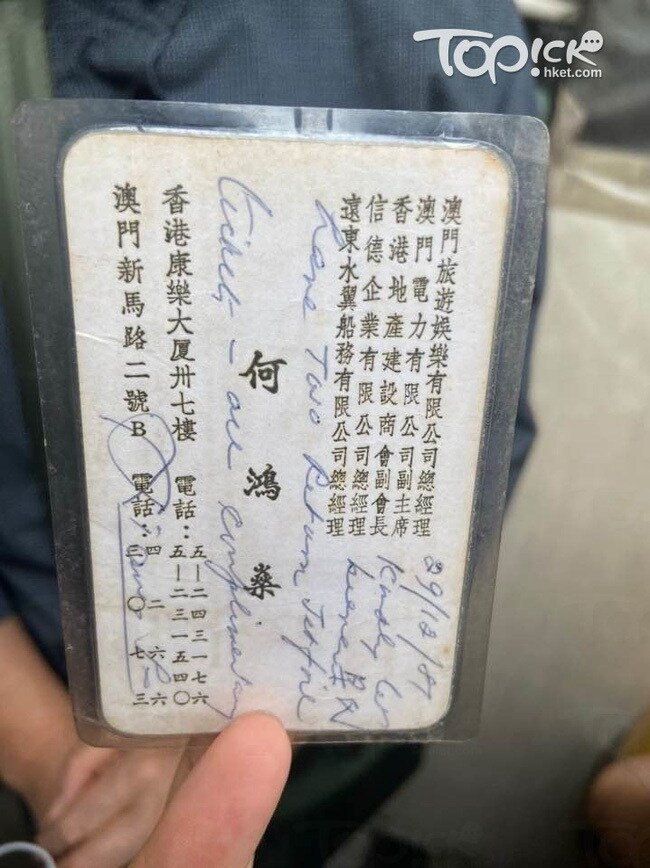 TOPICK
hket.com
澳門旅遊娛樂有限公司總經理
澳門電力有限公司副主席
香港地產建設商會副會長
信德企業有限公司總經理
遠東水翼船務有限公司總經理
何鴻燊
香港康樂大厦卅七樓 電話：五—二四三一七六
五—二三一五四〇
澳門新馬路二號B 電話：四二六六
三〇七三
29/12/87
Kindly
bearer
two Return Jetfoil
tickets - all complimentary